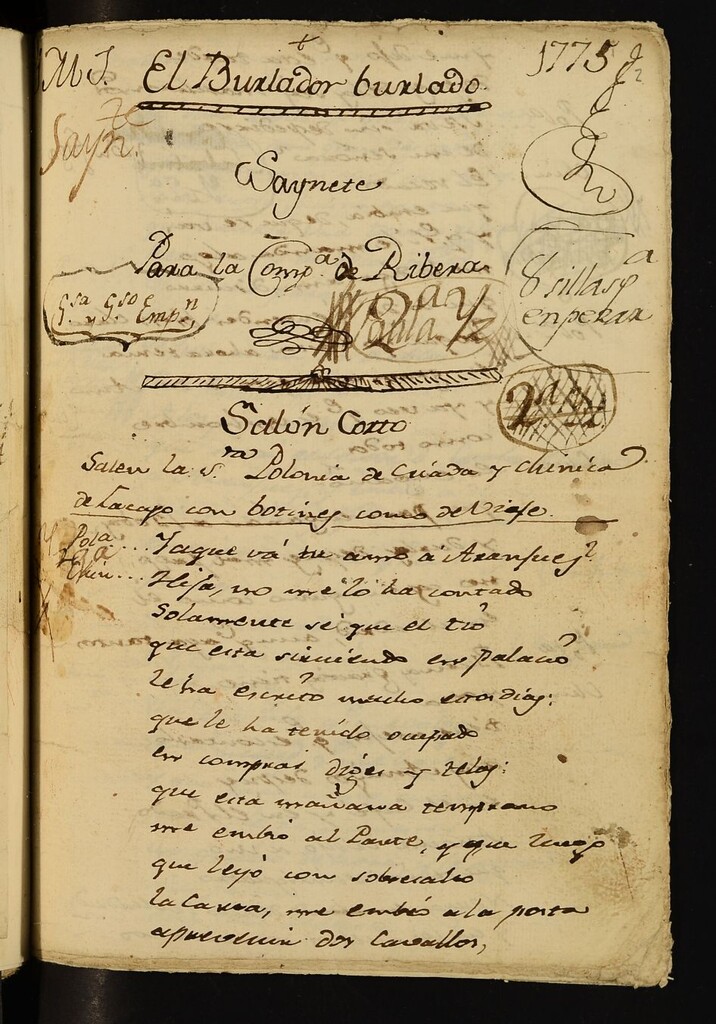 M J. El Burlador burlado. 1775
Sayn.te
Saynete
Para la Comp.a de Ribera
8 sillas p.a
enperar
Salón Corto
Salen la s.ra Polonia de Criada y chinica
de Lacayo con botines como de Viaje.
Pola... Ya que vá tu amo á Aranjuez?
Chin... Hija, no me lo ha contado
Solamente sé que el tio
que esta sirviendo en palacio
le ha escrito mucho estos dias:
que le ha tenido ocupado
en comprar dijes y telas:
que esta mañana temprano
me embió al Parte, y que luego
que leyó con sobresalto
la Carta, me embió a la posta
a prevenir dos Cavallos,